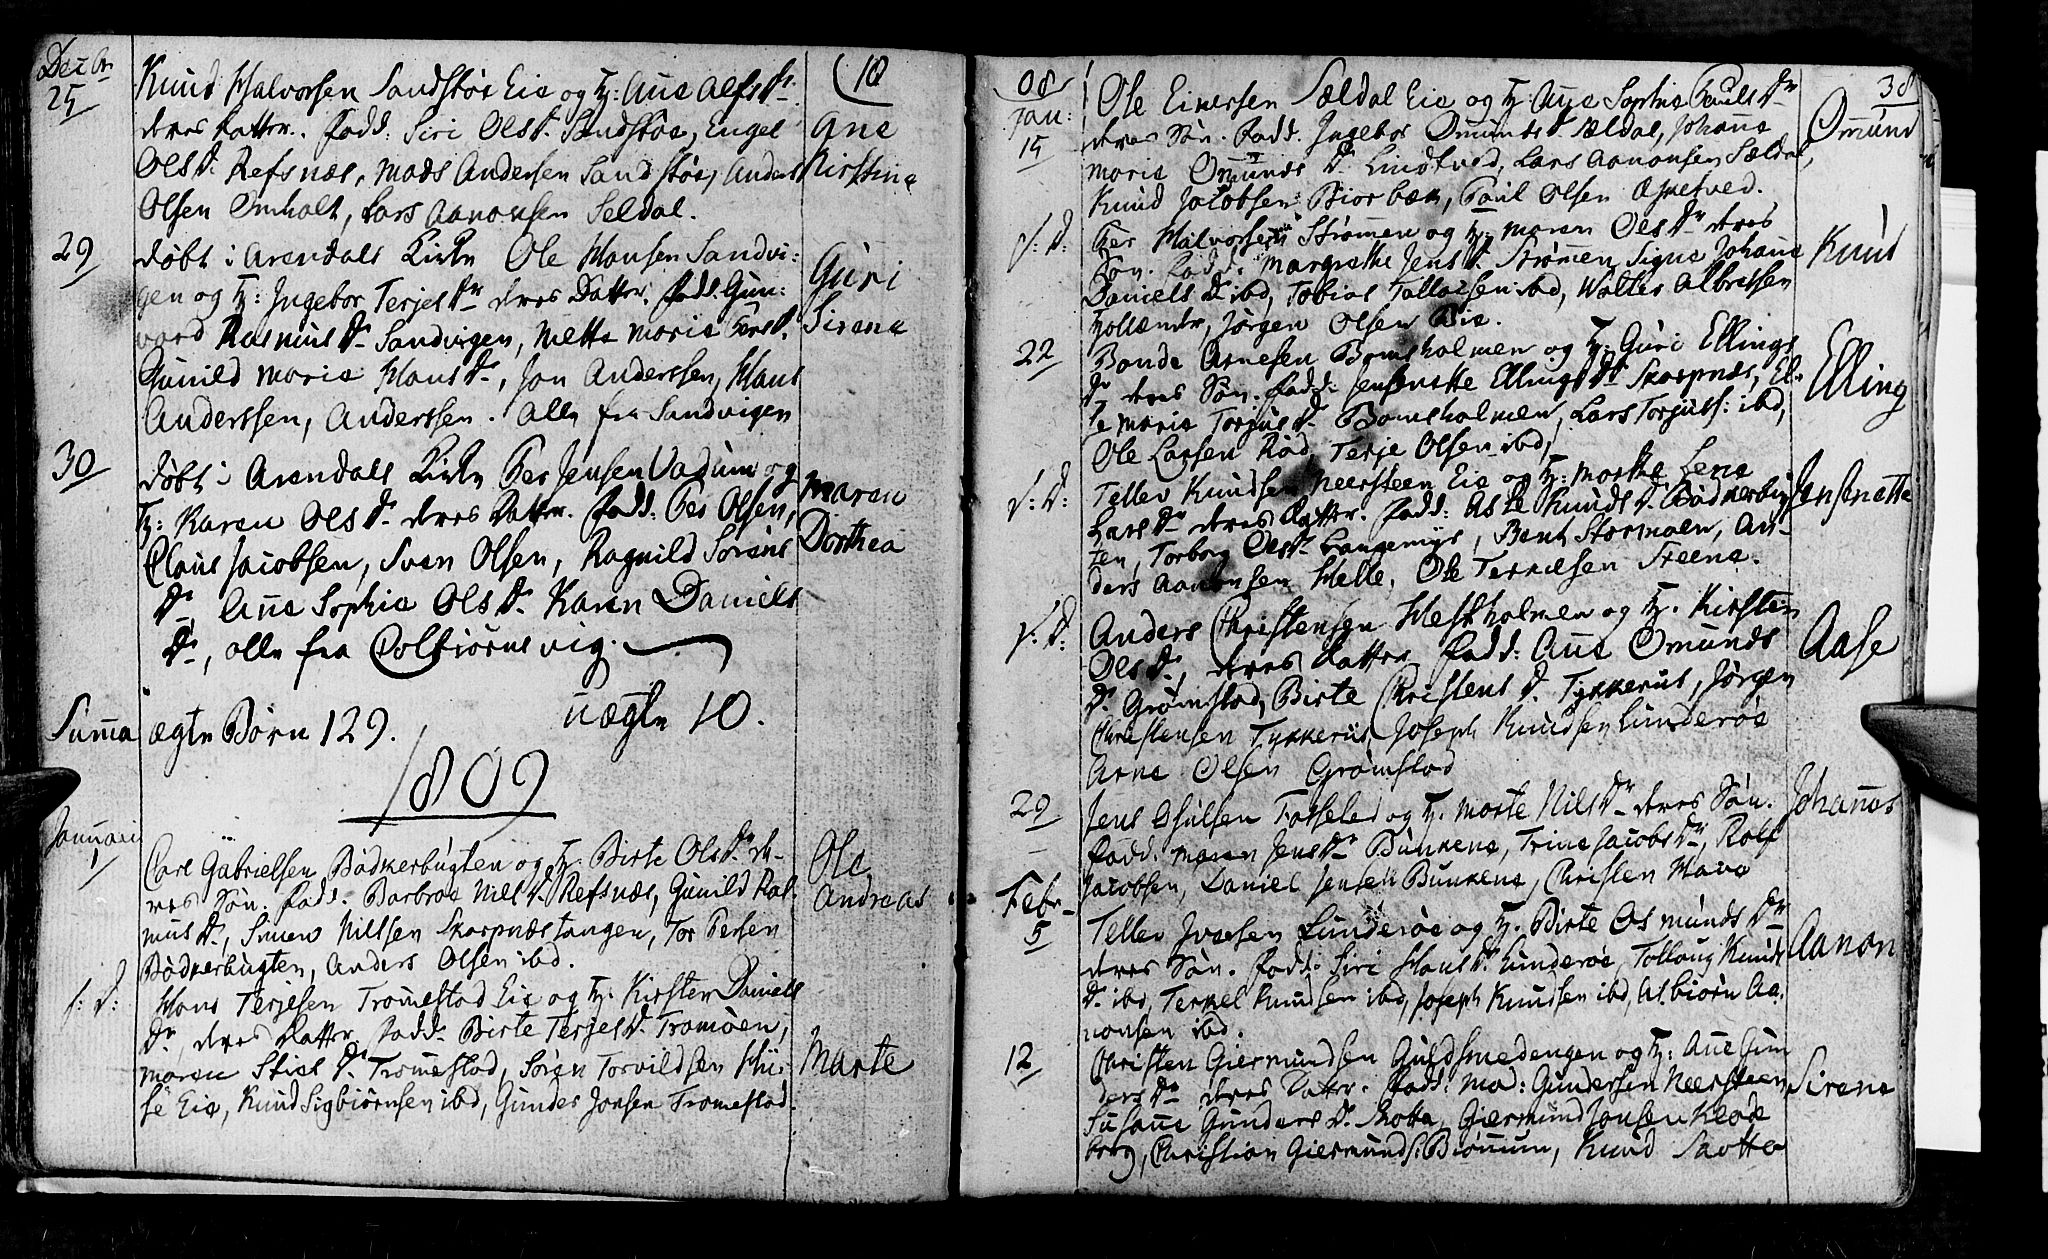 Decbr
25
Knud Halvorsen Sandstøe Eie og H: Ane Alfs Dr
deres Datter. fadd: Siri Ols D. Sandstøe, Engel
Ols D. Refsnæs, Mads Andersen Sandstøe, Anders
Olsen Omholt, Lars Aanonsen Seldal.
18
Ane
Kirstine
29
døbt i Arendals Kirke Ole Hansen Sandvi:
gen og H: Ingebor Terjes Dr deres Datter. fadd: Gun:
vord Rasmus Dr Sandvigen, Mette Marie Pers D.
Gunild Marie Hans Dr, Jon Anderssen, Hans
Anderssen, Anderssen. alle fra Sandvigen
Guri
Sirene
30
døbt i Arendals Kirke Per Jensen Vadum og
H: Karen Ols D. deres Datter. fadd: Per Olsen,
Claus Jacobsen, Sven Olsen, Ragnild Sørens
Dr, Ane Sophie Ols D. Karen Daniels
Dr, alle fra Colbiørnsvig.
Maren
Dorthea
Summa ægte Børn 129. uægte 10.
1809
Januari
1
Carl Gabrielsen Bødkerbugten og H: Birte Ols Dr de:
res Søn. fadd: Barbroe Nils D. Refsnæs, Gunild Ras
mus D., Nillsen Skarpnæstangen, Tor Persen
Bødkerbugten, Anders Olsen ibd.
Ole
Andreas
s: D:
Hans Terjesen Tromestad Eie og H: Kirsten Daniels
Dr, deres Datter, fadd: Birte Terjes D. Tromøen,
Maren Sties D. Tromestad, Søren Torvildsen Hu:
se Eie, Knud Sigbiørnsen ibd, Gunder Jonsen Tromestad.
Marte
08
38
Jan:
15
Ole Einersen Sældal Eie og H: Ane Sophie Pouls Dr
deres Søn. fadd. Ingebor Omunds D. Sældal, Johane
Marie Omunds Dr Lindtved, Lars Aanonsen Sældal,
Knud Jacobsen Biorbæk, Poul Olsen Asketved.
Omund
s: D:
Per Halvorsen Strømen og H: Maren Ols Dr deres
Søn. fadd: Margrethe Jens D. Strømen, Signe Johane
Daniels D ibd, Tobias Tallacsen ibd, Wolter Albretsen
Hollænder, Jørgen Olsen Bie.
Knud
22
Bonde Arnesen Bomsholmen og H: Guri Ellings
Dr deres Søn. fadd: Ellings Dr Skarpnæs, El:
se Marie Torjus D. Bomsholmen, Lars Torjuss: ibd,
Ole Larsen Rød, Terje Olsen ibd,
Elling
s: D:
Tellev Knudsen Neersteen Eie og H: Marthe Lene
Lars Dr deres Datter. fadd: Asle Knuds D. Bødkerbug
ten, Torborg Ols D. Langemyr, Bent Stormoen, An:
ders Aanonsen Helle, Ole Terkelsen Steene.
Jensenette
s: D:
Anders Christensen Hestholmen og H. Kirsten
Ols D., deres Datter fadd: Ane Omunds
D. Grømstad, Birte Christens D. Tykkerus, Jørgen
Christensen Tykkerus, Joseph Knudsen Lunderøe
Arne Olsen Grømstad
Aase
29
Jens og H. Marte Nils Dr deres Søn.
fadd. Maren Jens Dr Bunkene, Trine Jacobs Dr, Rolf
Jacobsen, Daniel Jensen Bunkene, Christen Have
Johannes
Febr.
5
Tellev Lunderøe og H. Birte Osmunds Dr
deres Søn. fadd: Siri Hans D. Lunderøe, Tollaug Knuds
D. ibd, Terkel Knudsen ibd, Joseph Knudsen ibd, Asbiørn Aa:
nonsen ibd.
Aanon
12
Christen Giermundsen Guldsmedengen og H: Ane Gun
ders Dr deres Datter. fadd: Mad: Gundersen Neersteen
Susane Gunders D. Giermund Jonsen Kløde
berg, Christian Giermunds: Biønnum, Knud
Sirene